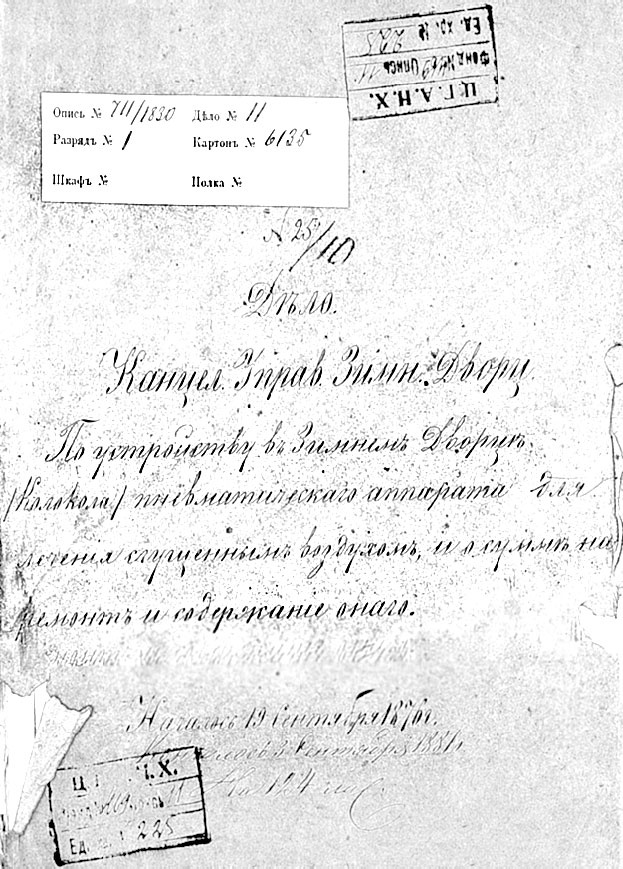 Ц.Г.А.Н.Х.
Фонд № 469 Опись 11
Ед. хр. № 225
Опись № VII/1830 Дѣло № 11
Разрядъ № 1 Картонъ № 6135
Шкафъ № Полка №
№ 25/10
Дѣло.
Канцел. Управ. Зимн. Дворц.
По устройству въ Зимнемъ Дворцѣ.
/Колокола/ пневматическаго аппарата для
леченія сгущеннымъ воздухомъ, и о суммѣ на
ремонтъ и содержаніе онаго.
Началось 19 Сентября 1876 г.
Сентября 1881 г.
На 124
Х.
11
Ед. 225